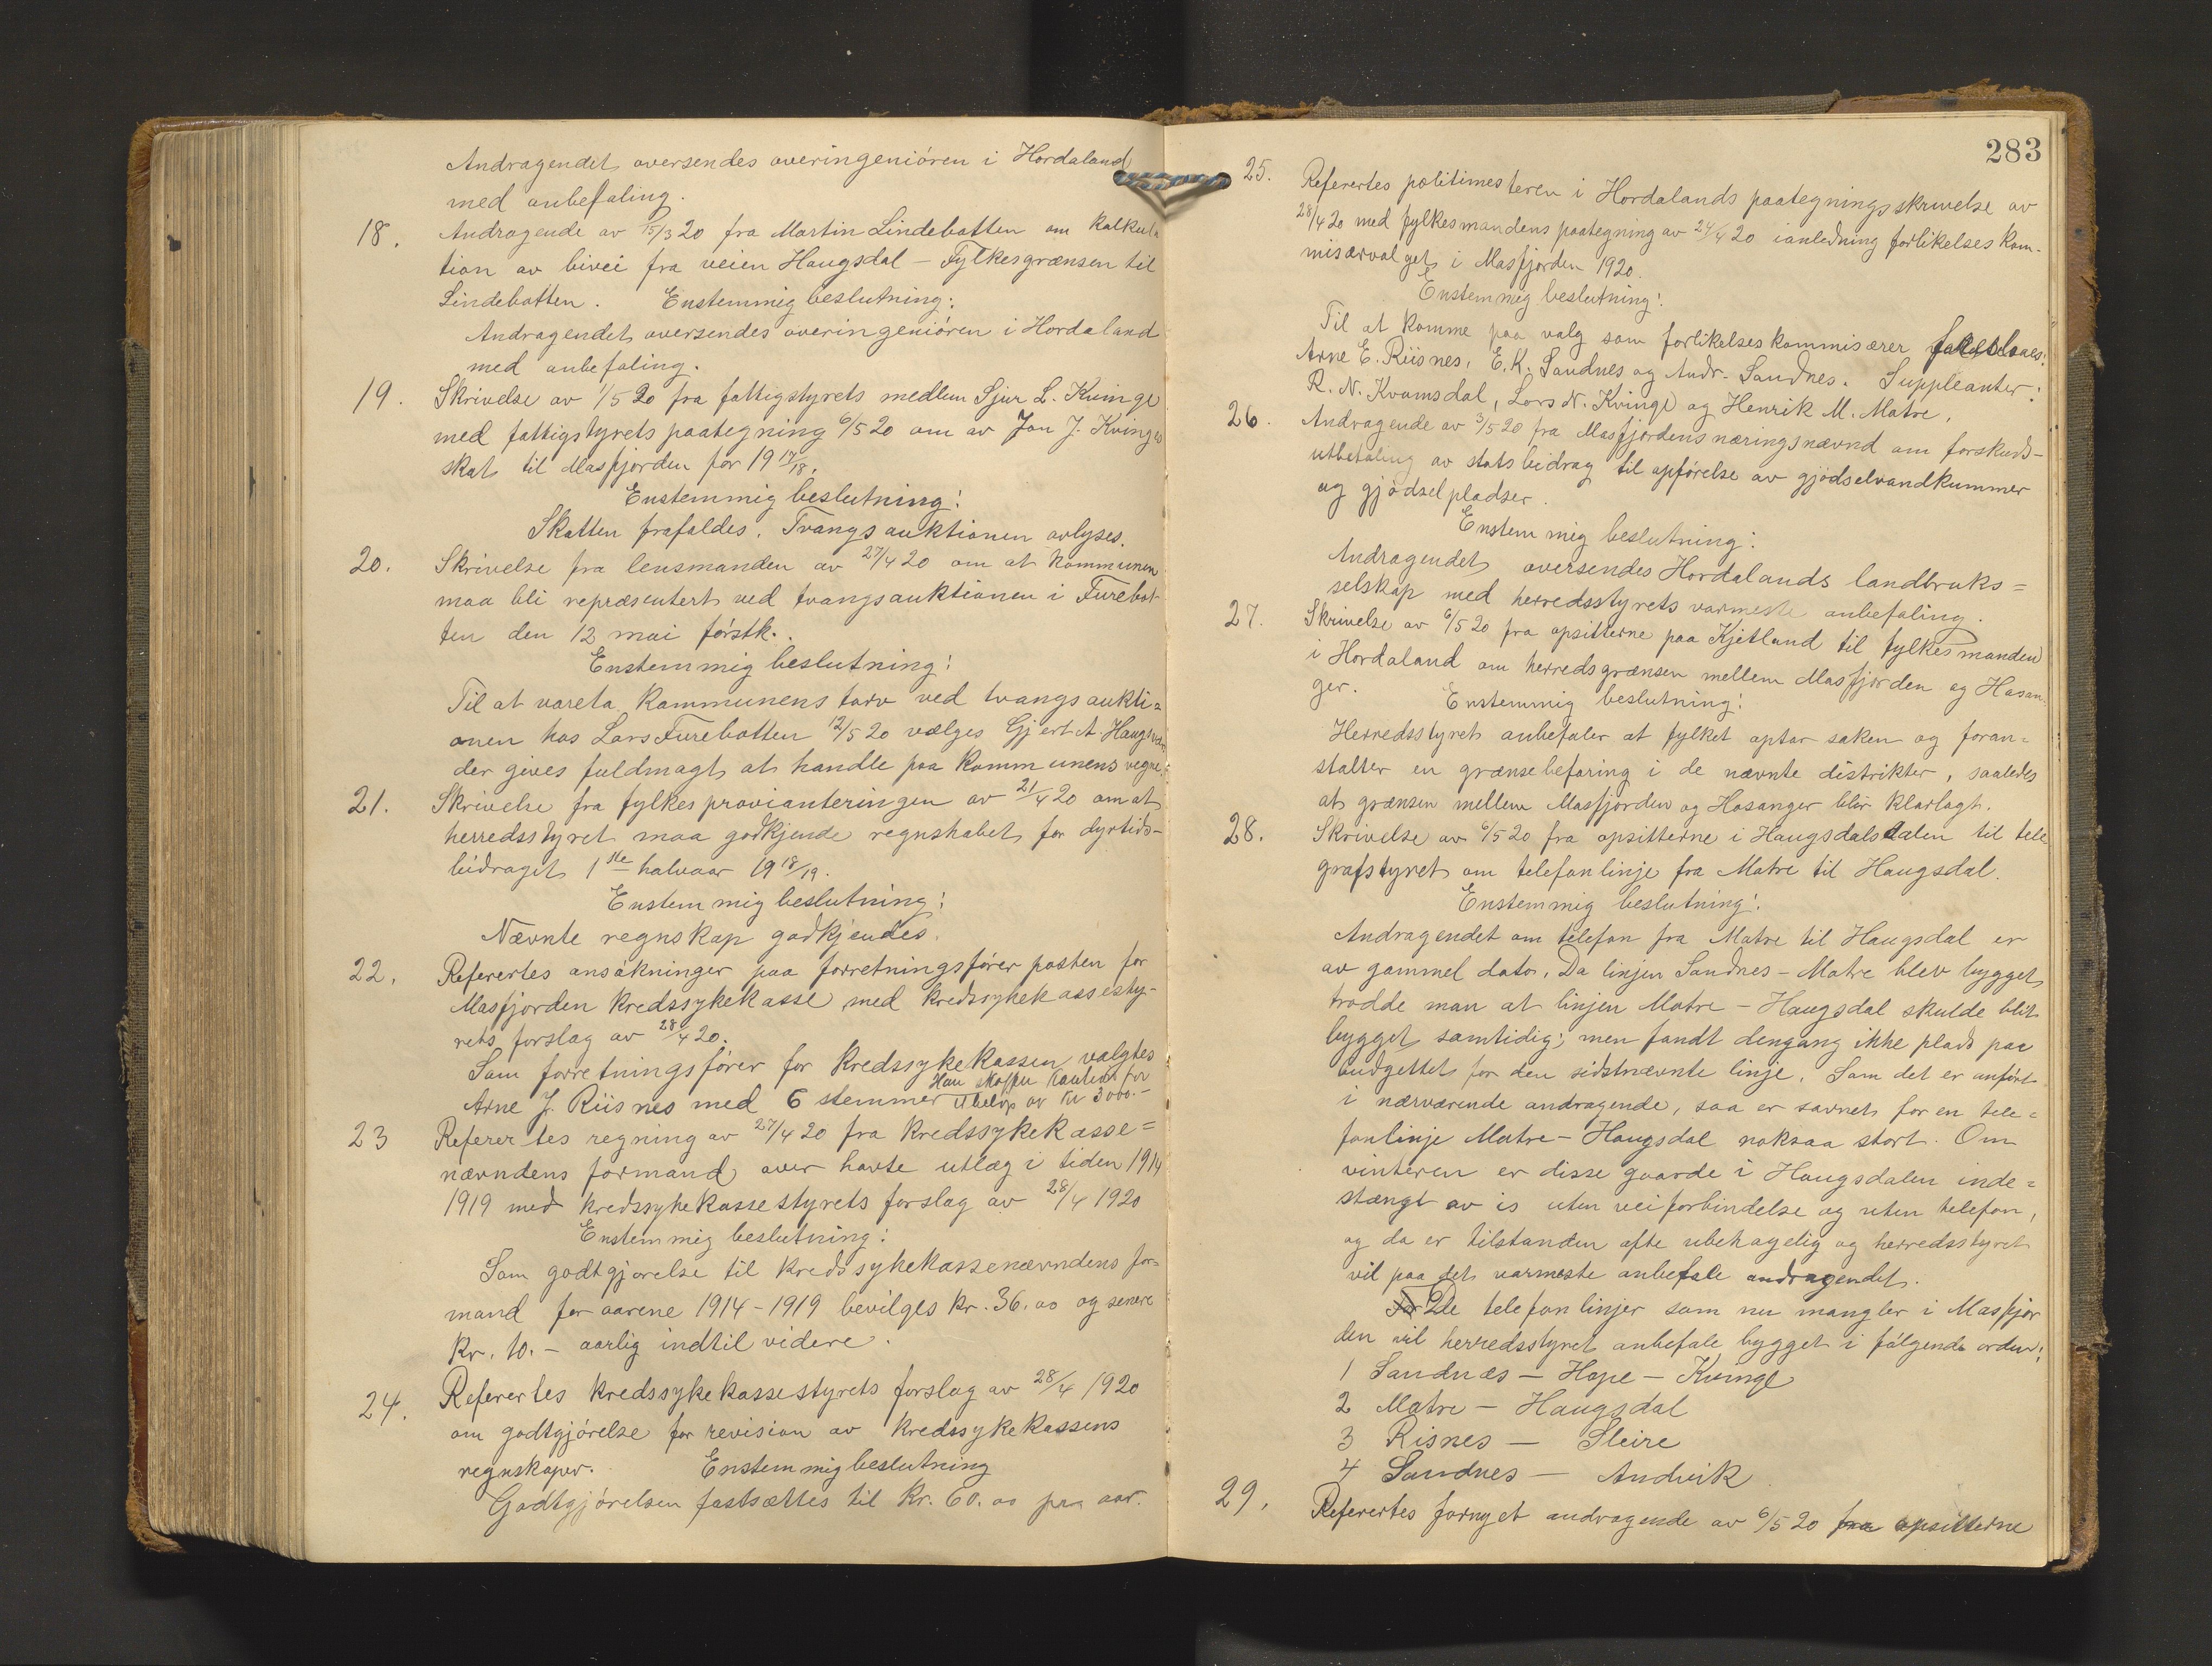 Andragendet oversendes overingeniøren i Hordaland
med anbefaling.
18. Andragende av 15/3 20 fra Martin Lindebotten om kalkula
tion av bivei fra veien Haugsdal – Fylkesgrænsen til
Lindebotten. Enstemmig beslutning:
Andragendet oversendes overingeniøren i Hordaland
med anbefaling.
19. Skrivelse av 1/5 20 fra fattigstyrets medlem Sjur L. Kvinge
med fattigstyrets paategning 6/5 20 om av Jon J. Kvinges
skat til Masfjorden for 19 17/18.
Enstemmig beslutning:
Skatten frafaldes. Tvangsauktionen avlyses.
20. Skrivelse fra lensmanden av 27/4 20 om at kommunen
maa bli repræsentert ved tvangsauktionen i Furebot-
ten den 12 mai førstk.
Enstemmig beslutning:
Til at vareta kommunens tarv ved tvangsaukti-
onen hos Lars Furebotten 12/5 20 vælges Gjert A.
der gives fuldmagt at handle paa kommunens vegne.
21. Skrivelse fra fylkesprovianteringen av 21/4 20 om at
herredsstyret maa godkjende regnskabet for dyrtids-
bidraget 1ste halvaar 19 18/19.
Enstemmig beslutning:
Nævnte regnskap godkjendes.
22. Referertes ansøkninger paa forretningsfører posten for
Masfjorden kredssykekasse med kredssykekassesty-
rets forslag av 28/4 20.
Som forretningsfører for kredssykekassen valgtes
Han skaffer kaution for
Arne J. Riisnes med 6 stemmer et beløp av kr 3000.-
23 Referertes regning av 27/4 20 fra kredssykekasse=
nævndens formand over havte utlæg i tiden 1914
1919 med kredssykekassestyrets forslag av 28/4 1920
Enstemmig beslutning:
Som godtgjørelse til kredssykekassenævndens for-
mand for aarene 1914-1919 bevilges kr. 36.00 og senere
kr. 10.- aarlig indtil videre.
24. Referertes kredssykekassestyrets forslag av 28/4 1920
om godtgjørelse for revision av kredssykekassens
regnskaper. Enstemmig beslutning
Godtgjørelsen fastsættes til kr. 60.00 pr. aar.
283
25. Referertes politimesteren i Hordalands paategningsskrivelse av
28/4 20 med fylkesmandens paategning av 24/4 20 i anledning forlikelseskom-
misærvalget i Masfjorden 1920.
Enstemmig beslutning:
Til at komme paa valg som forlikelseskommisærer
Arne E. Riisnes, E. K. Sandnes og Andr. Sandnes. Suppleanter:
R. N. Kvamsdal, Lars N. Kvinge og Henrik M. Matre.
26. Andragende av 3/5 20 fra Masfjordens næringsnævnd om forskuds-
utbetaling av statsbidrag til opførelse av gjødselvandkummer
og gjødselpladser.
Enstemmig beslutning:
Andragendet oversendes Hordalands landbruks=
selskap med herredsstyrets varmeste anbefaling.
27. Skrivelse av 6/5 20 fra opsitterne paa Kjetland til fylkesmanden
i Hordaland om herredsgrænsen mellem Masfjorden og Hosan-
ger. Enstemmig beslutning:
Herredsstyret anbefaler at fylket optar saken og foran=
stalter en grænsebefaring i de nævnte distrikter, saaledes
at grænsen mellem Masfjorden og Hosanger blir klarlagt.
28. Skrivelse av 6/5 20 fra opsitterne i Haugsdalsdalen til tele
grafstyret om telefonlinje fra Matre til Haugsdal.
Enstemmig beslutning:
Andragendet om telefon fra Matre til Haugsdal er
av gammel dato. Da linjen Sandnes – Matre blev bygget
trodde man at linjen Matre – Haugsdal skulde blit
bygget samtidig; men fandt dengang ikke plads paa
budgettet for den sidstnævnte linje. Som det er anført
i nærværende andragende, saa er savnet for en tele=
fonlinje Matre – Haugsdal noksaa stort. Om
vinteren er disse gaarde i Haugsdalen inde=
stængt av is uten veiforbindelse og uten telefon,
og da er tilstanden ofte ubehagelig og herredsstyret
vil paa det varmeste anbefale andragendet.
For De telefonlinjer som nu mangler i Masfjor
den vil herredsstyret anbefale bygget i følgende orden:
1 Sandnæs – Hope – Kvinge
2 Matre – Haugsdal
3 Risnes – Sleire
4 Sandnes – Andvik
29. Referertes fornyet andragende av 6/5 20 fra opsitterne